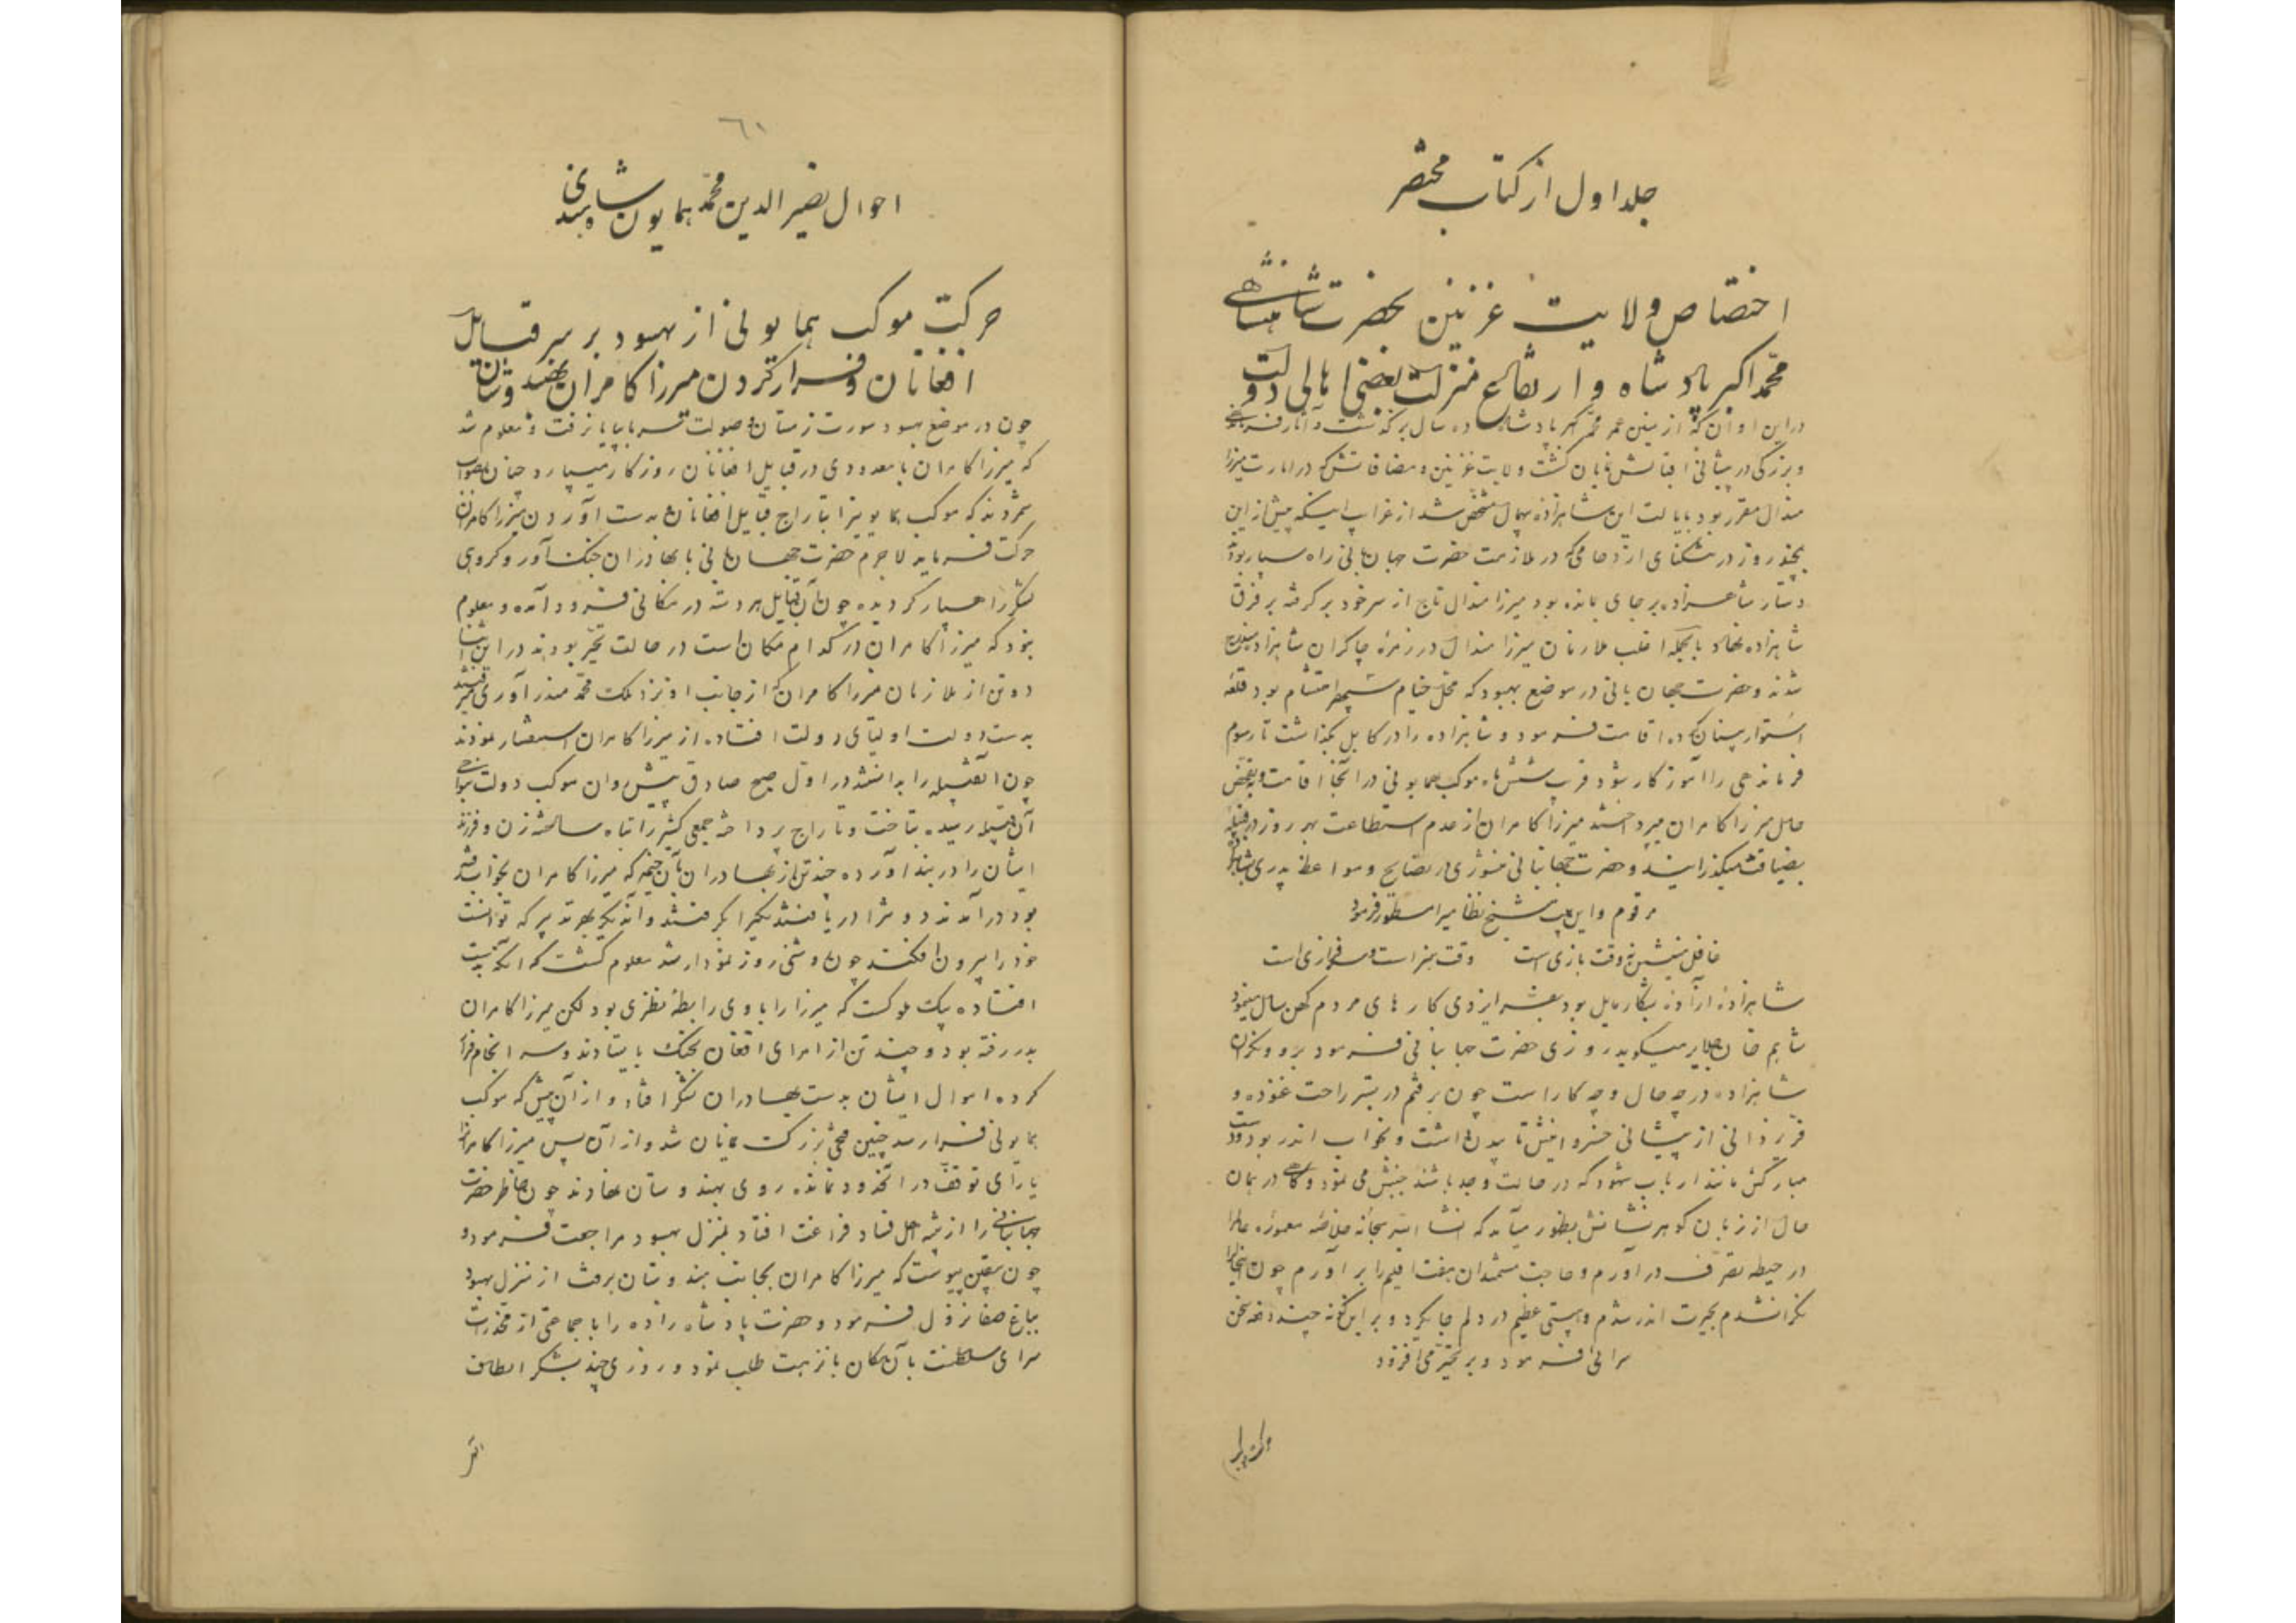 جلد اول از کتاب مختصر
اختصاص ولایت غزنین بحضرت شاهنشاهی
محمد اکبر پادشاه و ارتفاع منزلت بعضی اهالی دولت
در این اوان که از سنین عمر محمد اکبر پادشاه ده سال برگذشت و آثار
و بزرگی در پیشانی اقبالش نمایان گشت ولایت غزنین و مضافاتش که در امارت میرزا
هندال مقرر بود بایالت این شاهزاده بیهمال مشخص شد از غرایب اینکه پیش از این
بچند روز در تنگنای ازدحامی که در ملازمت حضرت جهان بانی راه سپار بود
دستار شاهزاده بر جای مانده بود میرزا هندال تاج از سر خود برگرفته بر فرق
شاهزاده نهاد بالجمله اغلب ملازمان میرزا هندال در زمره چاکران شاهزاده
شدند و حضرت جهان بانی در موضع بهسود که محل خیام سپهر احتشام بود قلعه
استوار بنیان کرده اقامت فرمود و شاهزاده را در کابل بگذاشت تا رسوم
فرماندهی را آموزگار شود قرب شش ماه موکب همایونی در آنجا اقامت
حال میرزا کامران میپرداختند میرزا کامران از عدم استطاعت هر روز در قبیله
بضیافت میگذرانید و حضرت جهانبانی منشوری از نصایح و مواعظ پدری
مرقوم و این بیت شیخ نظامی را مسطور فرمود
غافل منشین نه وقت بازی است وقت هنر است و سرفرازی است
شاهزاده آزاده بشکار مایل بود بفر ایزدی کارهای مردم کهن سال مینمود
شاهم خان جلایر میگوید روزی حضرت جهانبانی فرمود برو و نگران
شاهزاده در چه حال و چه کار است چون برفتم در بستر راحت غنوده و
فر یزدانی از پیشانی خسروانیش تابیدن داشت و بخواب اندر بود دست
مبارکش مانند ارباب شهود که در حالت وجد باشند جنبش می نمود و گاهی در همان
حال از زبان گوهر نشانش بظهور میآمد که انشاءالله سبحانه خلاصه معموره عالم را
در حیطه تصرف در آورم و حاجت مستمندان هفت اقلیم را بر آورم چون اینحال را
نگران شدم بحیرت اندر شدم و هیبتی عظیم در دلم جا بگرد و بر این گونه چند دفعه سخن
سرائی فرمود و بر تحیر می افزود
٦١
احوال نصیر الدین محمد همایون شاه هندی
حرکت موکب همایونی از بهسود بر سر قبایل
افغانان و فرار کردن میرزا کامران بهندوستان
چون در موضع بهسود سورت زمستان و صولت سرما پایان رفت و معلوم شد
که میرزا کامران با معدودی در قبایل افغانان روزگار میسپارد چنان بصواب
شمردند که موکب همایونی را بتاراج قبایل افغانان و بدست آوردن میرزا کامران
حرکت فرمایند لاجرم حضرت جهان بانی با بهادران جنگ آور و گروهی
لشکر رهسپار گردیده چون بآن قبایل در مکانی فرود آمده و معلوم
نبود که میرزا کامران در کدام مکان است در حالت تحیر بودند در این اثنا
دو تن از ملازمان میرزا کامران که از جانب او نزد ملک محمد
بدست دولت اولیای دولت افتاده از میرزا کامران استفسار نمودند
چون آن قبیله را بدانستند در اول صبح صادق پیش روان موکب دولت
آن قبیله رسیده بتاخت و تاراج پرداخته جمعی کثیر را تباه ساخته زن و فرزند
ایشان را در بند آورده چند تن از بهادران بآن خیمه که میرزا کامران بخواب
بود در آمدند دو تن را دریافتند یکیرا بگرفتند و آن دیگر بهر تدبیر که توانست
خود را بیرون افکند چون روشنی روز نمودار شد معلوم گشت که آنکه بدست
افتاده بیک ملوک است که میرزا را با وی رابطه نظری بود لکن میرزا کامران
بدر رفته بود و چند تن از امرای افغان بجنگ بایستادند و سرانجام فرار
کرده اموال ایشان بدست بهادران لشکر افتاد و از آن پیش که موکب
همایونی فرا رسد چنین فتحی بزرگ نمایان شد و از آن پس میرزا کامران را
یارای توقف در آنحدود نمانده روی بهندوستان نهادند چون خاطر حضرت
جهانبانی را از اهل فساد فراغت افتاد بمنزل بهسود مراجعت فرمود و
چون بیقین پیوست که میرزا کامران بجانب هندوستان برفت از منزل بهسود
بباغ صفا نزول فرمود و حضرت پادشاه زاده را با جماعتی از مخدرات
سرای سلطنت بآن مکان بانزهت طلب نمود و روزی چند بشکر الطاف